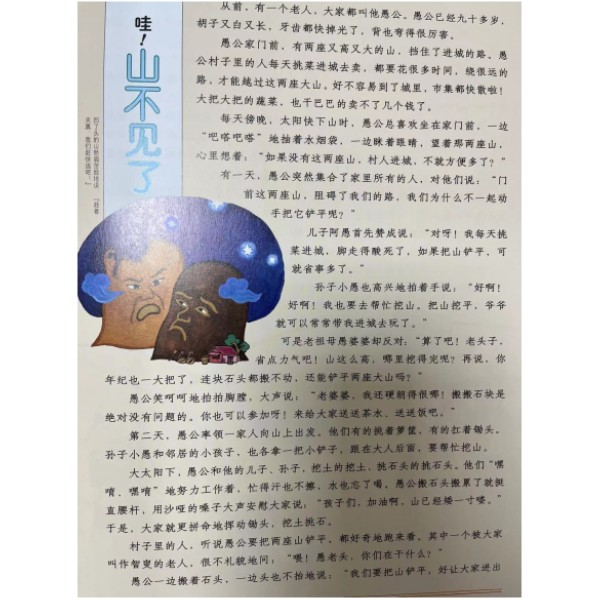 哇！
山不见了
从前，有一个老人，大家都叫他愚公。愚公已经九十多岁，
胡子又白又长，牙齿都快掉光了，背也弯得很厉害。
愚公家门前，有两座又高又大的山，挡住了进城的路。愚
公村子里的人每天挑菜进城去卖，都要花很多时间，绕很远的
路，才能越过这两座大山。好不容易到了城里，市集都快散啦！
大把大把的蔬菜，也干巴巴的卖不了几个钱了。
每天傍晚，太阳快下山时，愚公总喜欢坐在家门前，一边
“吧嗒吧嗒”地抽着水烟袋，一边眯着眼睛，望着那两座山，
心里想着：“如果没有这两座山，村人进城，不就方便多了？”
有一天，愚公突然集合了家里所有的人，对他们说：“门
前这两座山，阻碍了我们的路，我们为什么不一起动
手把它铲平呢？”
儿子阿愚首先赞成说：“对呀！我每天挑
菜进城，脚走得酸死了，如果把山铲平，可
就省事多了。”
孙子小愚也高兴地拍着手说：“好啊！
好啊！我也要去帮忙挖山。把山挖平，爷爷
就可以常常带我进城去玩了。”
可是老祖母愚婆婆却反对：“算了吧！老头子，
省点力气吧！山这么高，哪里挖得完呢？再说，你
年纪也一大把了，连块石头都搬不动，还能铲平两座大山吗？”
愚公笑呵呵地拍拍胸膛，大声说：“老婆婆，我还硬朗得很哪！搬搬石块是
绝对没有问题的。你也可以参加呀！来给大家送送茶水、送送饭吧。”
第二天，愚公率领一家人向山上出发。他们有的挑着箩筐，有的扛着锄头。
孙子小愚和邻居的小孩子，也各拿一把小铲子，跟在大人后面，要帮忙挖山。
大太阳下，愚公和他的儿子、孙子，挖土的挖土，挑石头的挑石头。他们“嘿
唷、嘿唷”地努力工作着，忙得汗也不擦，水也忘了喝。愚公搬石头搬累了就挺
直腰杆，用沙哑的嗓子大声安慰大家说：“孩子们，加油啊，山已经矮一寸喽。”
于是，大家就更拼命地挥动锄头，挖土挑石。
村子里的人，听说愚公要把两座山铲平，都好奇地跑来看。其中一个被大家
叫作智叟的老人，很不礼貌地问：“喂！愚老头，你们在干什么？”
愚公一边搬着石头，一边头也不抬地说：“我们要把山铲平，好让大家进出